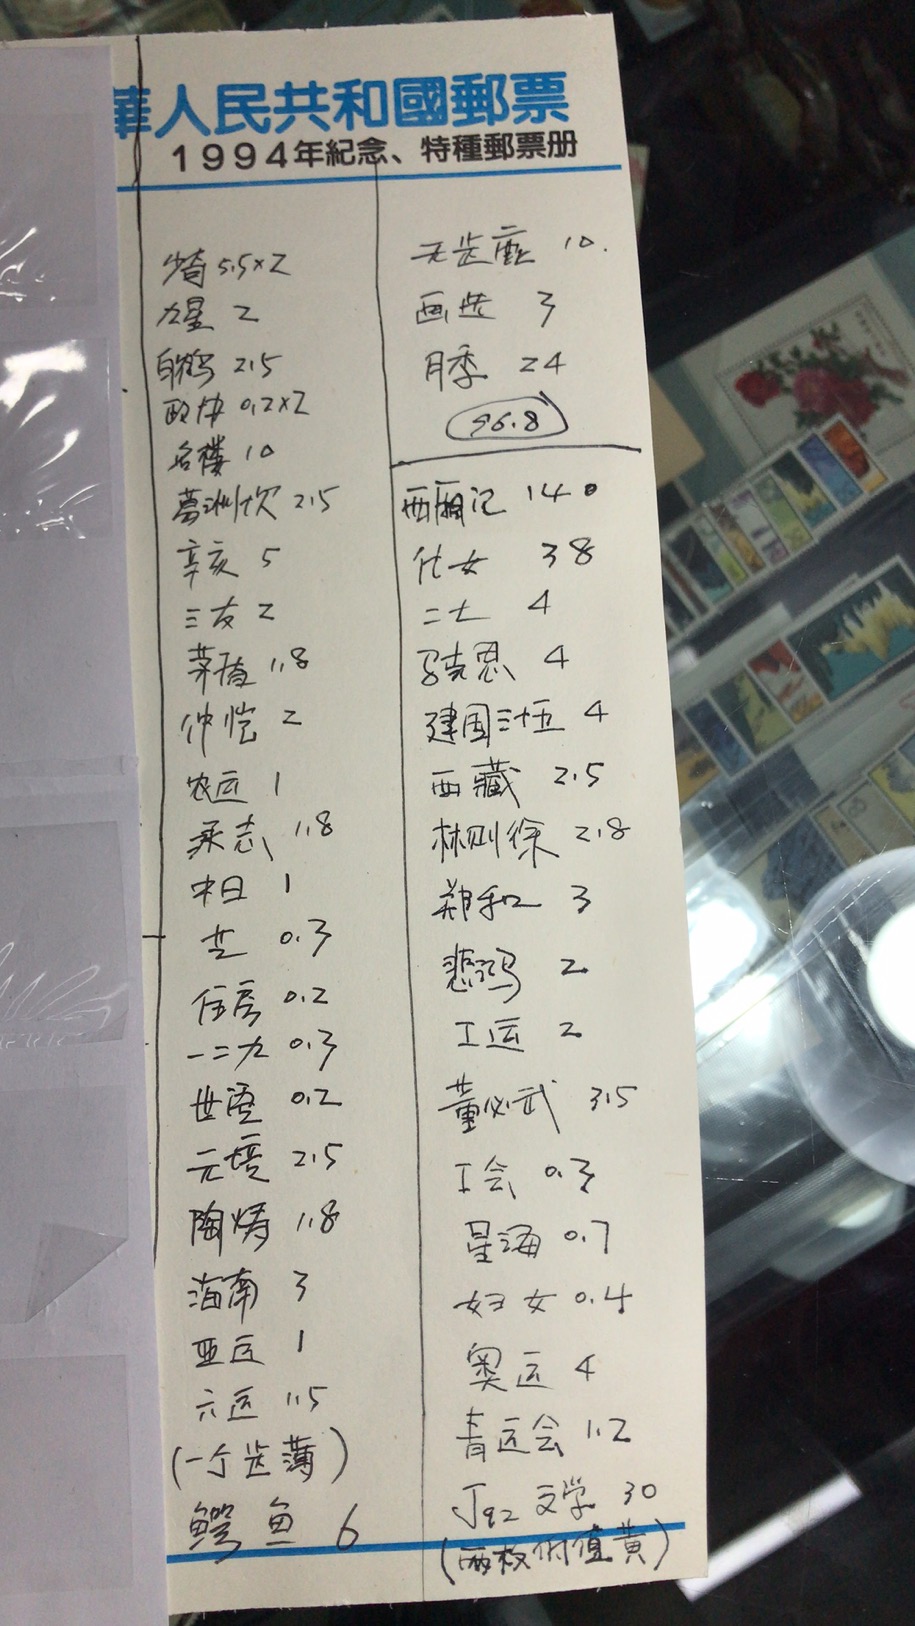 華人民共和國郵票
1994年紀念、特種郵票册
5.5×2
2
白鹤 2.5
政协 0.2×2
名楼 10
葛洲坝 2.5
辛亥 5
三友 2
1.8
仲恺 2
农运 1
承志 1.8
中日 1
艺 0.3
住房 0.2
一二九 0.3
世语 0.2
元培 2.5
陶铸 1.8
海南 3
亚运 1
六运 1.5
(一个齿薄)
鳄鱼 6
无齿鹿 10.
画选 3
月季 24
96.8
西厢记 140
仕女 38
二七 4
马克思 4
建国三十五 4
西藏 2.5
林则徐 2.8
郑和 3
悲鸿 2
工运 2
董必武 3.5
工会 0.3
星海 0.7
妇女 0.4
奥运 4
青运会 1.2
J92 文学 30
(两枚付值黄)